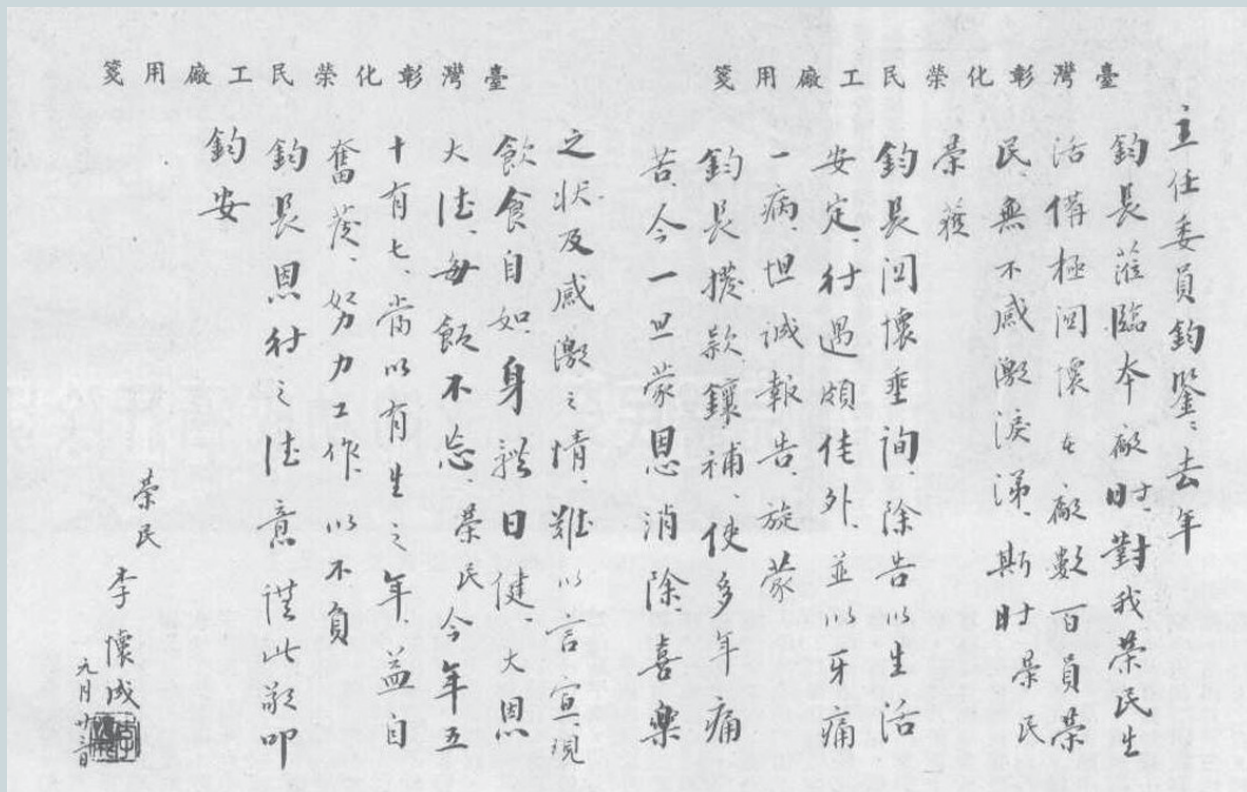 臺灣彰化榮民工廠用箋
主任委員鈞鑒、去年
鈞長蒞臨本廠时、對我榮民生
活備極関懷、本廠數百員榮
民、無不感激淚涕、斯时榮民
榮蒙
鈞長関懷垂詢、除告以生活
安定、待遇頗佳外、並以牙痛
一病、坦誠報告、旋蒙
鈞長撥款鑲補、使多年痛
苦、今一旦蒙恩消除、喜樂
臺灣彰化榮民工廠用箋
之状及感激之情、難以言宣、現
飲食自如、身體日健、大恩
大德、每飯不忘、榮民今年五
十有七、當以有生之年、益自
奮發、努力工作、以不負
鈞長恩待之德意、謹此敬叩
鈞安
榮民 李懷成
元月廿三日